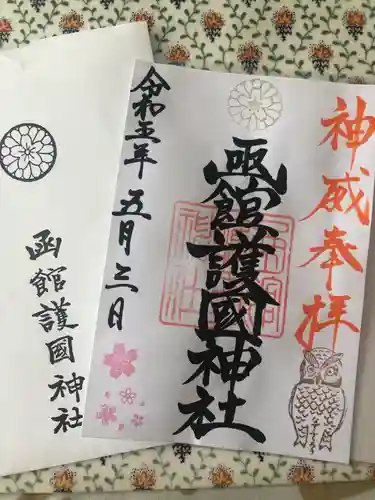 神威奉拝
函館護國神社
令和五年
五月三日
函館護國神社